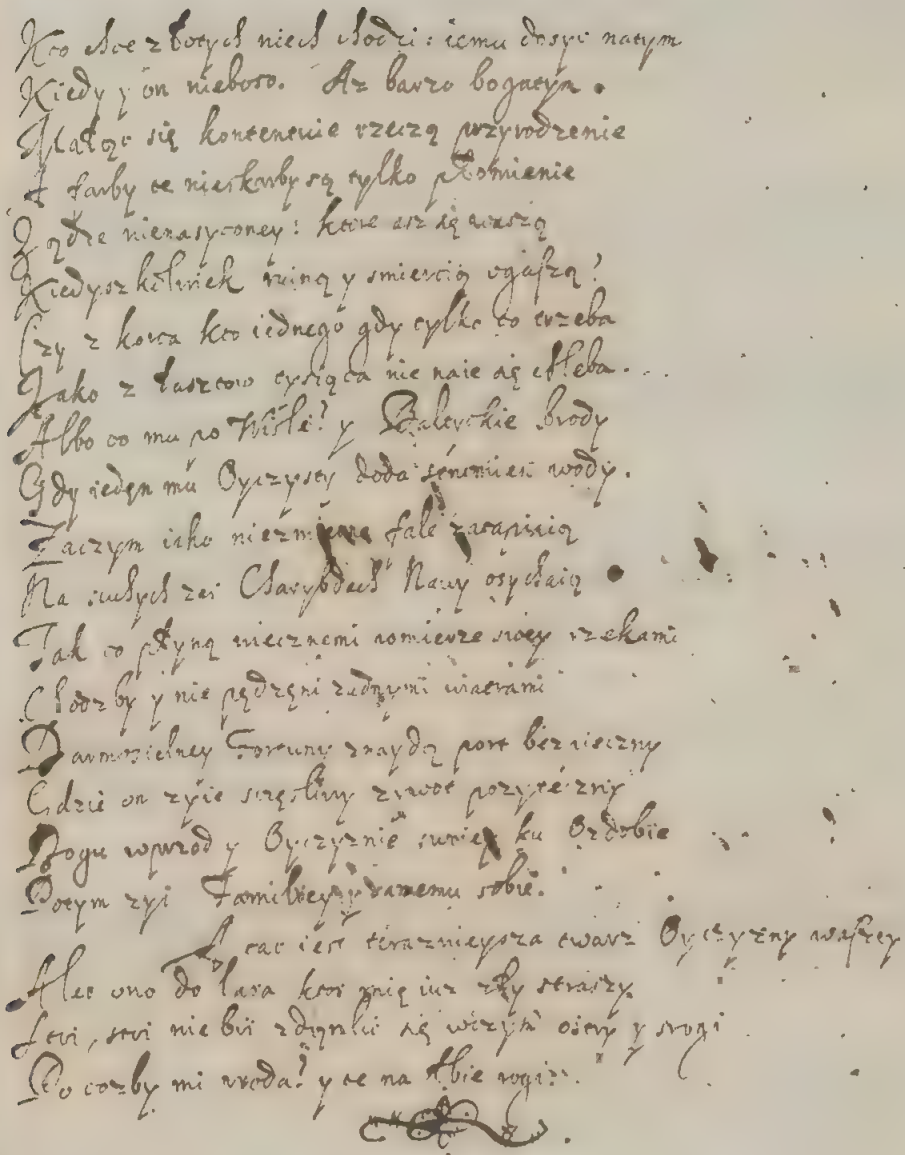 Kto chce złotych niech chodzi: iemu dosyć natym
Kiedy y on nieboso. Az barzo bogatym.
Małą się kontentuie rzeczą przyrodzenie
A farby te nieskarby są tylko płomienie
Ządze nienasyconey: ktore asz się
Kiedyszkolwiek ruiną y smiercią ugaszą?
Czy z korca kto iednego gdy tylko co trzeba
Jako z tysiąca nie naie się chleba...
Albo co mu po Wiśle? y Balthckie brody
Gdy ieden mu Oyczysty doda strumien wody.
Zaczym iako niezmierne fale zatapiaią
Na suchych zas Charybdach Nawy osychaią
Tak co płyną wiecznemi womierze swey rzekami
Chodzby y nie pędzeni zadnymi wiatrami
Fortuny znaydą port bespieczny
Gdzie on zyie sczęsliwy zywot pozyteczny
Bogu wprzod y Oyczyznie swiey ku Ozdobie
Potym zyi Familiey y samemu sobie.
A tac iest teraznieysza twarz Oyczyzny waszey
Alec ono do lasa ktos mię iuz zły straszy.
Stoi, stoi nie bii się wczym ostry y srogi
Po cozby mi uroda? y te na łbie rogi?